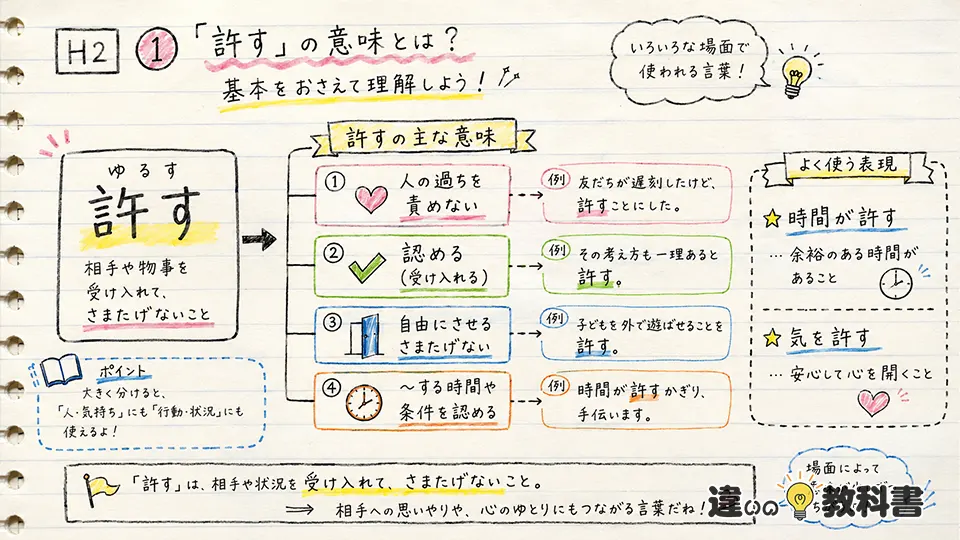 H2 ① 「許す」の意味とは？
基本をおさえて理解しよう！
いろいろな場面で
使われる言葉！
ゆるす
許す
相手や物事を
受け入れて、
さまたげないこと
ポイント
大きく分けると、
「人・気持ち」にも「行動・状況」にも
使えるよ！
許すの主な意味
① 人の過ちを
責めない
例 友だちが遅刻したけど、
許すことにした。
② 認める
(受け入れる)
例 その考え方も一理あると
許す。
③ 自由にさせる
さまたげない
例 子どもを外で遊ばせることを
許す。
④ 〜する時間や
条件を認める
例 時間が許すかぎり、
手伝います。
よく使う表現
時間が許す
… 余裕のある時間が
あること
気を許す
… 安心して心を開くこと
「許す」は、相手や状況を受け入れて、さまたげないこと。
⇒ 相手への思いやりや、心のゆとりにもつながる言葉だね！
場面によって
違いの教科書